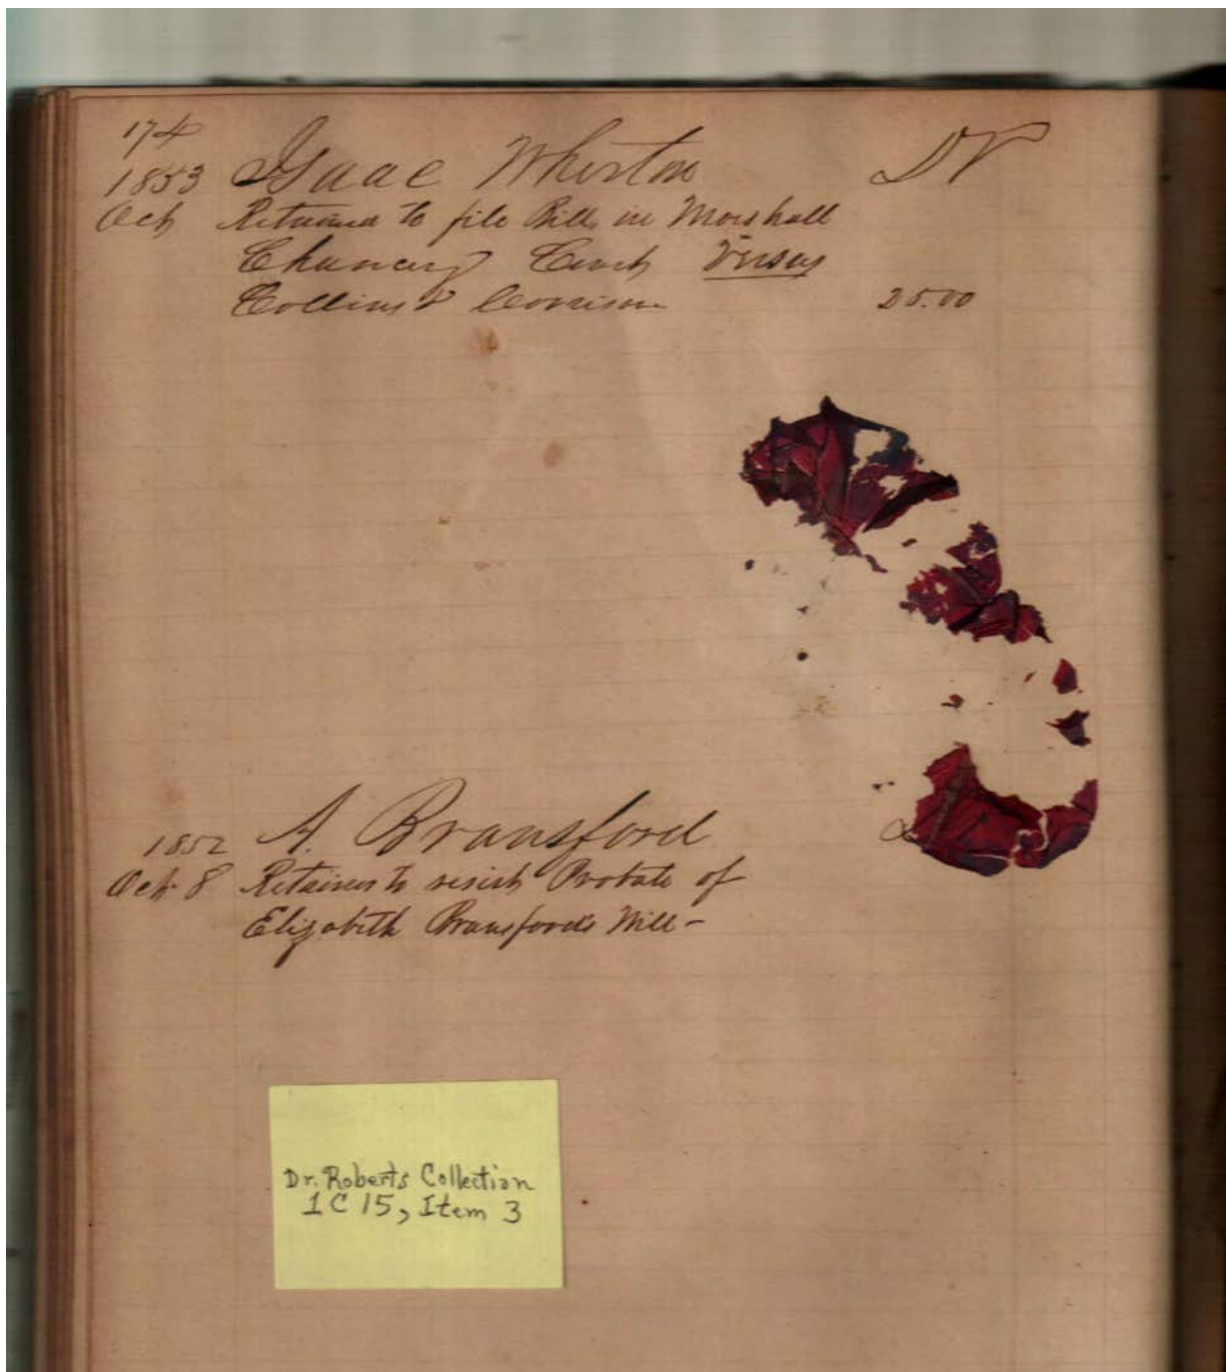 174
1853 Isaac Wharton Dr
Oct Retained to file Bill in Marshall
Chancery Court Versus
Collins & 25.00
1852 A. Bransford
Oct 8 Retainer to resist Probate of
Elizabeth Bransford's Will -
Dr. Roberts Collection
1C 15, Item 3